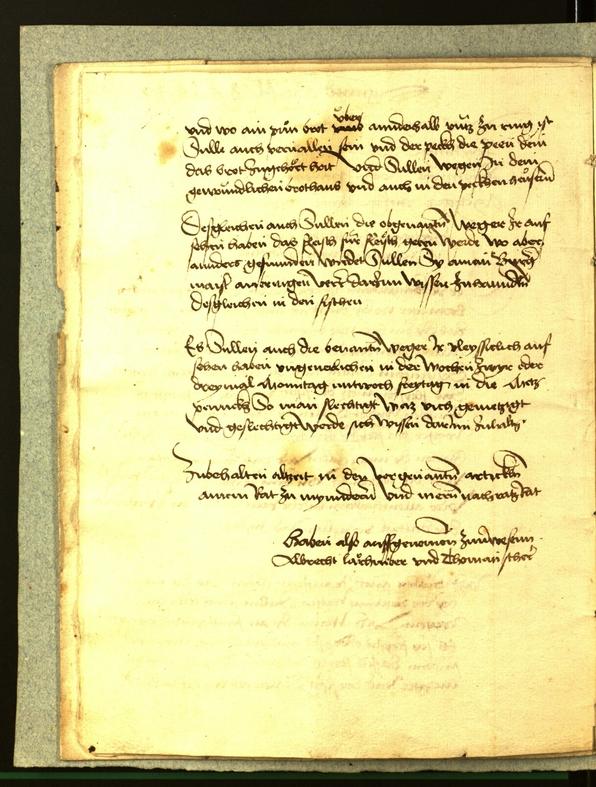 über
und wo ain prün brot annderhalb untz zu ring ist
Sulle auch veruallen sein und der peckh die peen dem
das brot Zugehört hat und Sullen wegen In dem
gewondlichen brothaus und auch in den peckhen heusern
Desgleichen auch Sullen die obgenantn weger Ir auf
sehen haben das fleisch für fleisch geben werde wo aber
annders gefunden wurdet Sullen Sy amem Burger
maist anczeugen der darInn wissen
Desgleichen in den fischen
Es Sullen auch die benantn weger Ir vleyssiclich auf
sehen haben ungeuerlichen in der wochen zwyr oder
dreymal Monntag mitwoch freytag in die Metz
penncken So man slechtigt waz vich gemetzigt
und geslechtigt werde sich wissen darInn zuhaltn
Zubehalten altzeit in den vorgenantn articklen
ainem Rat zu mynndern und mern nach rat
Haben also auffgenomen Zuuwesenn
Albrecht und Thoman